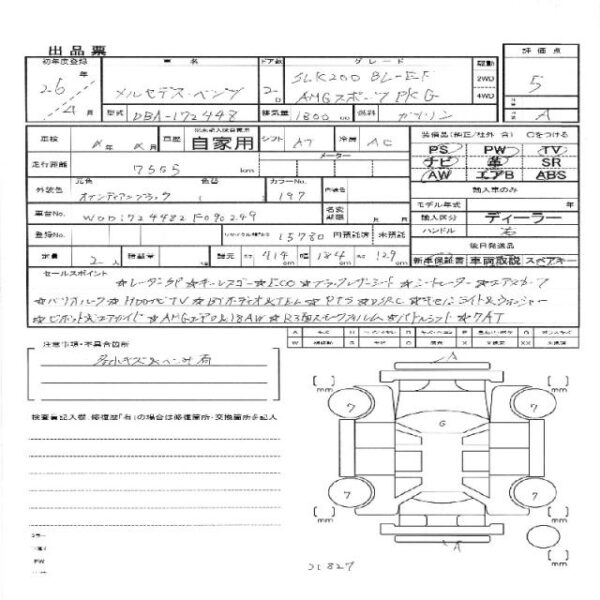 出品票
初年度登録 車名 ドア数 グレード 駆動 評価点
26年 メルセデス・ベンツ 2D SLK200 BL-EF 2WD 5
4月 AMGスポーツPKG 4WD
型式 DBA-172448 排気量 1800cc 燃料 ガソリン A
車検 年 月 自家用 シフト AT 冷房 AC
装備品(純正/社外 含) Cをつける
PS PW TV
ナビ 革 SR
AW エアB ABS
走行距離 7555 km メーター
輸入車のみ
外装色 元色 色替 カラーNo. 197 内装色
モデル年式 年
車台No. WDD1724482F090249 名変期限 月 日
輸入区分 ディーラー
ハンドル 右
登録No. 15780円 預託済 未預託
後日発送品
定員 2人 積載量 諸元 長 414cm 幅 184cm 高 129cm
新車保証書 車両取説 スペアキー
セールスポイント
☆レーダーSFP☆キーレスゴー☆ECO☆ブラックレザーシート☆シートヒーター☆エアスカーフ
☆バリオルーフ☆HDDナビTV☆BTオーディオ&TEL☆PTS☆DSRC☆キセノンライト&ウォッシャー
☆AMGエアロ&18AW☆R3面スモークフィルム☆パドルシフト☆7AT
注意事項・不具合箇所
各小キズ&ヘコミ有
検査員記入欄 修復歴「有」の場合は修復箇所・交換箇所を記入
A
mm mm
7 7
G
7 7
mm mm mm
A
31827